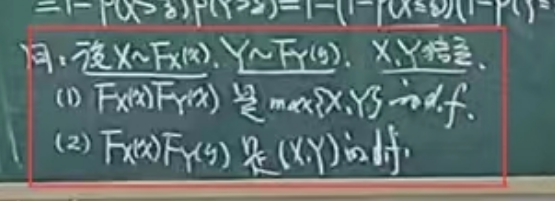 =1-P(X>z)P(Y>z)=1-(1-P(X≤z))(1-P(Y≤
问:设X~Fx(x), Y~FY(y), X,Y独立,
(1) Fx(x)FY(x) 是 max{X,Y} 的d.f.
(2) Fx(x)FY(y) 是 (X,Y)的d.f.